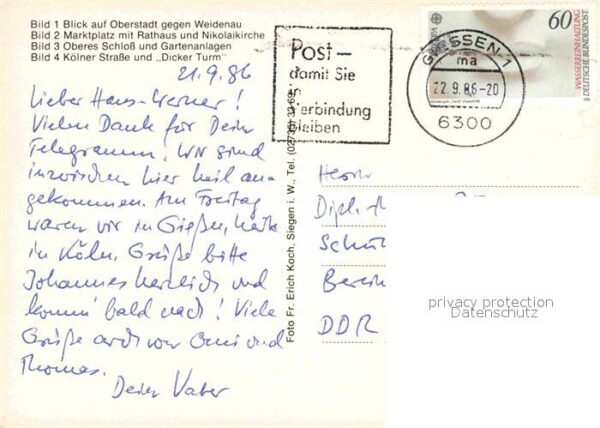 Bild 1 Blick auf Oberstadt gegen Weidenau
Bild 2 Marktplatz mit Rathaus und Nikolaikirche
Bild 3 Oberes Schloß und Gartenanlagen
Bild 4 Kölner Straße und „Dicker Turm"
21.9.86
Lieber Hans-Werner!
Vielen Dank für Dein
Telegramm. Wir sind
inzwischen hier heil an-
gekommen. Am Freitag
waren wir in Gießen, heute
in Köln. Grüße bitte
Johannes herzlich und
komm' bald nach! Viele
Grüße auch von Omi und
Thomas.
Dein Vater
Foto Fr. Erich Koch, Siegen i. W., Tel.
Post –
damit Sie
in
Verbindung
bleiben
GIESSEN 1
ma
22.9.86-20
6300
60
WASSERREINHALTUNG
DEUTSCHE BUNDESPOST
Herrn
Dipl.-
DDR
privacy protection
Datenschutz